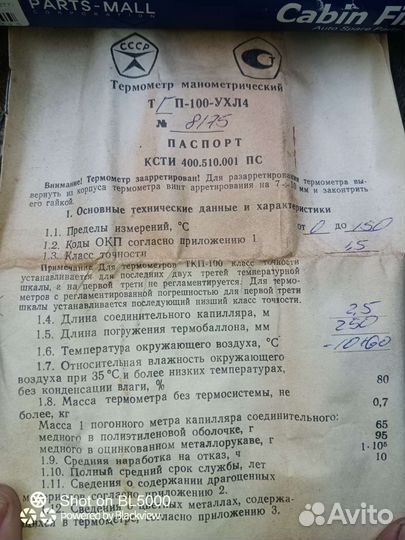 PARTS-MALL
CORPORATION
Cabin Fi
Auto Spare Par
СССР
Термометр манометрический
ТГП-100-УХЛ4
№ 8175
ПАСПОРТ
КСТИ 400.510.001 ПС
Внимание! Термометр заарретирован! Для разарретирования термометра вы-
вернуть из корпуса термометра винт арретирования на 7-10 мм и законтрить
его гайкой.
1. Основные технические данные и характеристики
1.1. Пределы измерений, °С от 0 до 150
1.2. Коды ОКП согласно приложению 1
1.3. Класс точности 1,5
Примечание Для термометров ТКП-100 класс точности
устанавливается для последних двух третей температурной
шкалы, а на первой трети не регламентируется. Для термо-
метров с регламентированной погрешностью для первой трети
шкалы устанавливается последующий низший класс точности.
1.4. Длина соединительного капилляра, м 2,5
1.5. Длина погружения термобаллона, мм 250
1.6. Температура окружающего воздуха, °С -10+60
1.7. Относительная влажность окружающего
воздуха при 35°С и более низких температурах,
без конденсации влаги, % 80
1.8. Масса термометра без термосистемы, не
более, кг 0,7
Масса 1 погонного метра капилляра соединительного:
медного в полиэтиленовой оболочке, г 65
медного в оцинкованном металлорукаве, г 95
1.9. Средняя наработка на отказ, ч 1·10⁵
1.10. Полный средний срок службы, лет 10
1.11. Сведения о содержании драгоценных
приложению 2.
Сведения о цветных металлах, содержа-
щихся в термометре, согласно приложению 3.
Shot on BL5000
Powered by Blackview
Avito